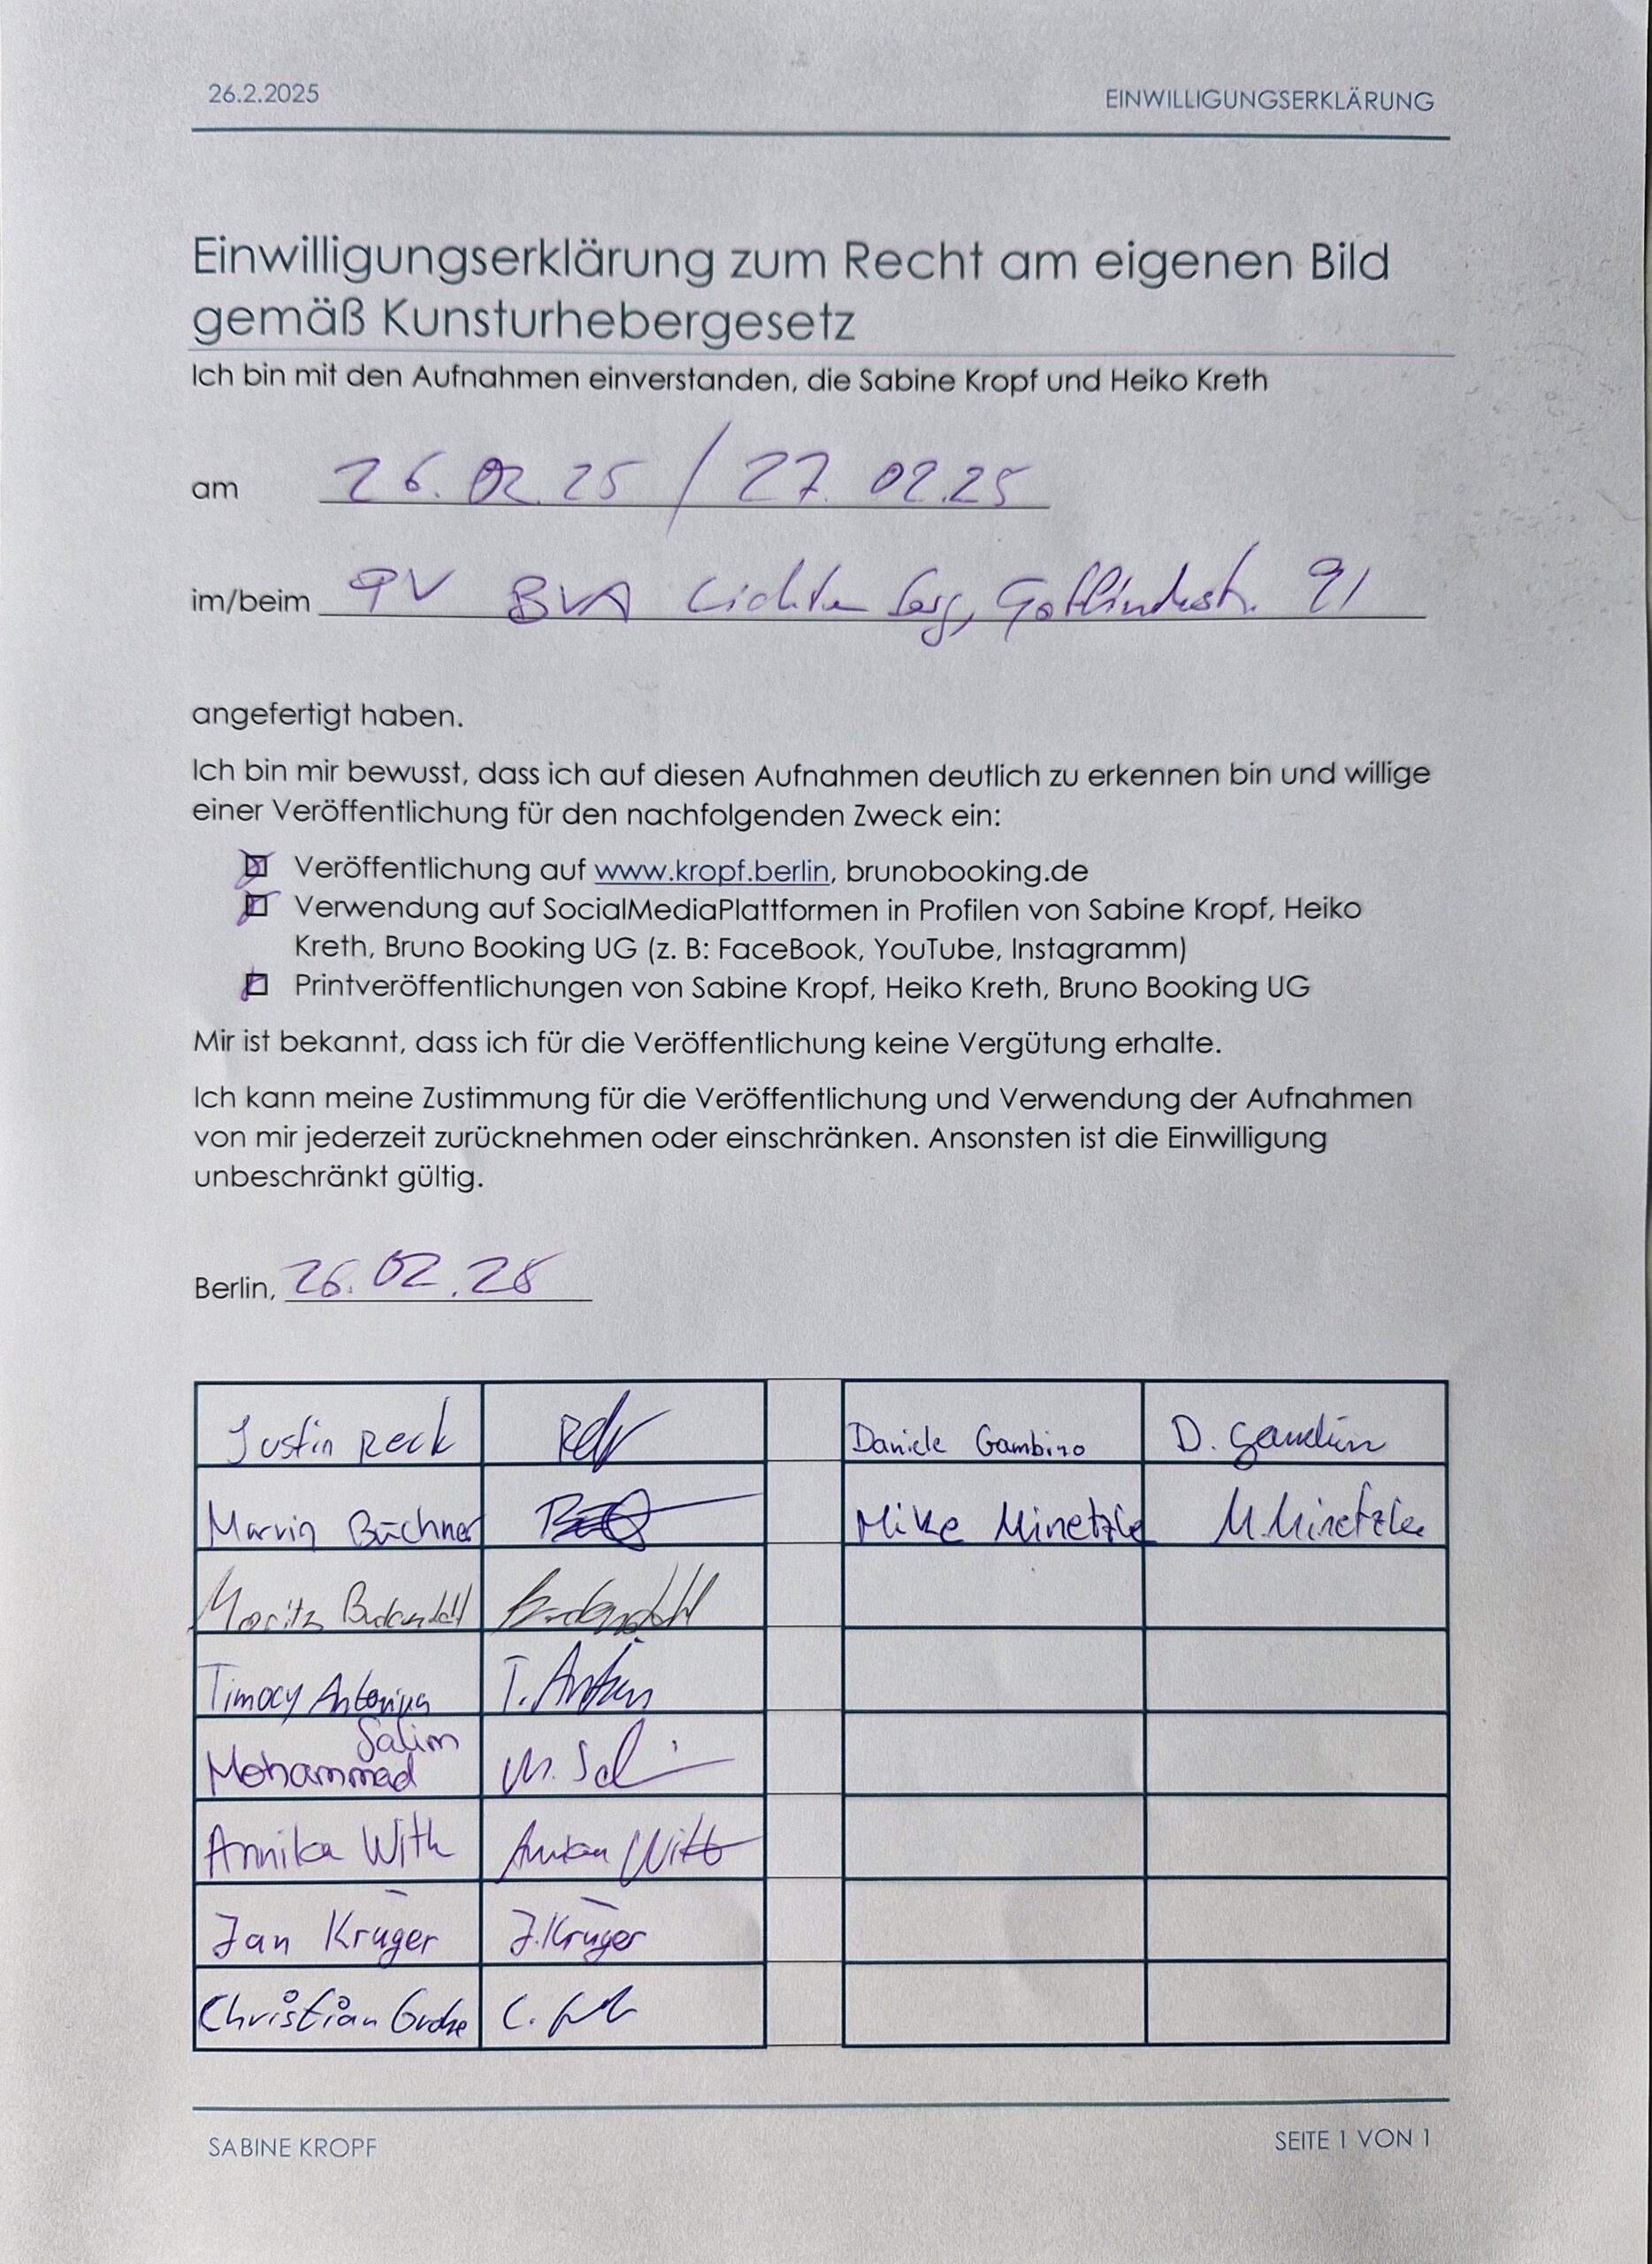 26.2.2025 EINWILLIGUNGSERKLÄRUNG
Einwilligungserklärung zum Recht am eigenen Bild
gemäß Kunsturhebergesetz
Ich bin mit den Aufnahmen einverstanden, die Sabine Kropf und Heiko Kreth
am 26.02.25 / 27.02.25
im/beim BVA Lichtenberg, Gotlindestr. 91
angefertigt haben.
Ich bin mir bewusst, dass ich auf diesen Aufnahmen deutlich zu erkennen bin und willige
einer Veröffentlichung für den nachfolgenden Zweck ein:
Veröffentlichung auf www.kropf.berlin, brunobooking.de
Verwendung auf SocialMediaPlattformen in Profilen von Sabine Kropf, Heiko
Kreth, Bruno Booking UG (z. B: FaceBook, YouTube, Instagramm)
Printveröffentlichungen von Sabine Kropf, Heiko Kreth, Bruno Booking UG
Mir ist bekannt, dass ich für die Veröffentlichung keine Vergütung erhalte.
Ich kann meine Zustimmung für die Veröffentlichung und Verwendung der Aufnahmen
von mir jederzeit zurücknehmen oder einschränken. Ansonsten ist die Einwilligung
unbeschränkt gültig.
Berlin, 26.02.25
Justin Reck Daniele Gambino D.
Marvin Büchner Mike Minetzke M. Minetzke
Moritz
Timocy T.
Salim
Mohammad M.
Annika Witt Annika Witt
Jan Krüger J. Krüger
Christian C.
SABINE KROPF SEITE 1 VON 1